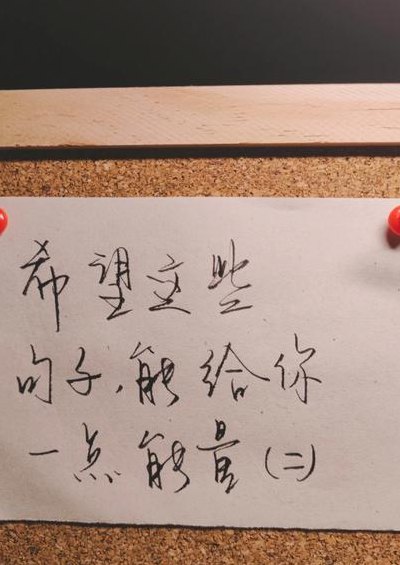 希望这些
句子,能给你
一点能量(二)